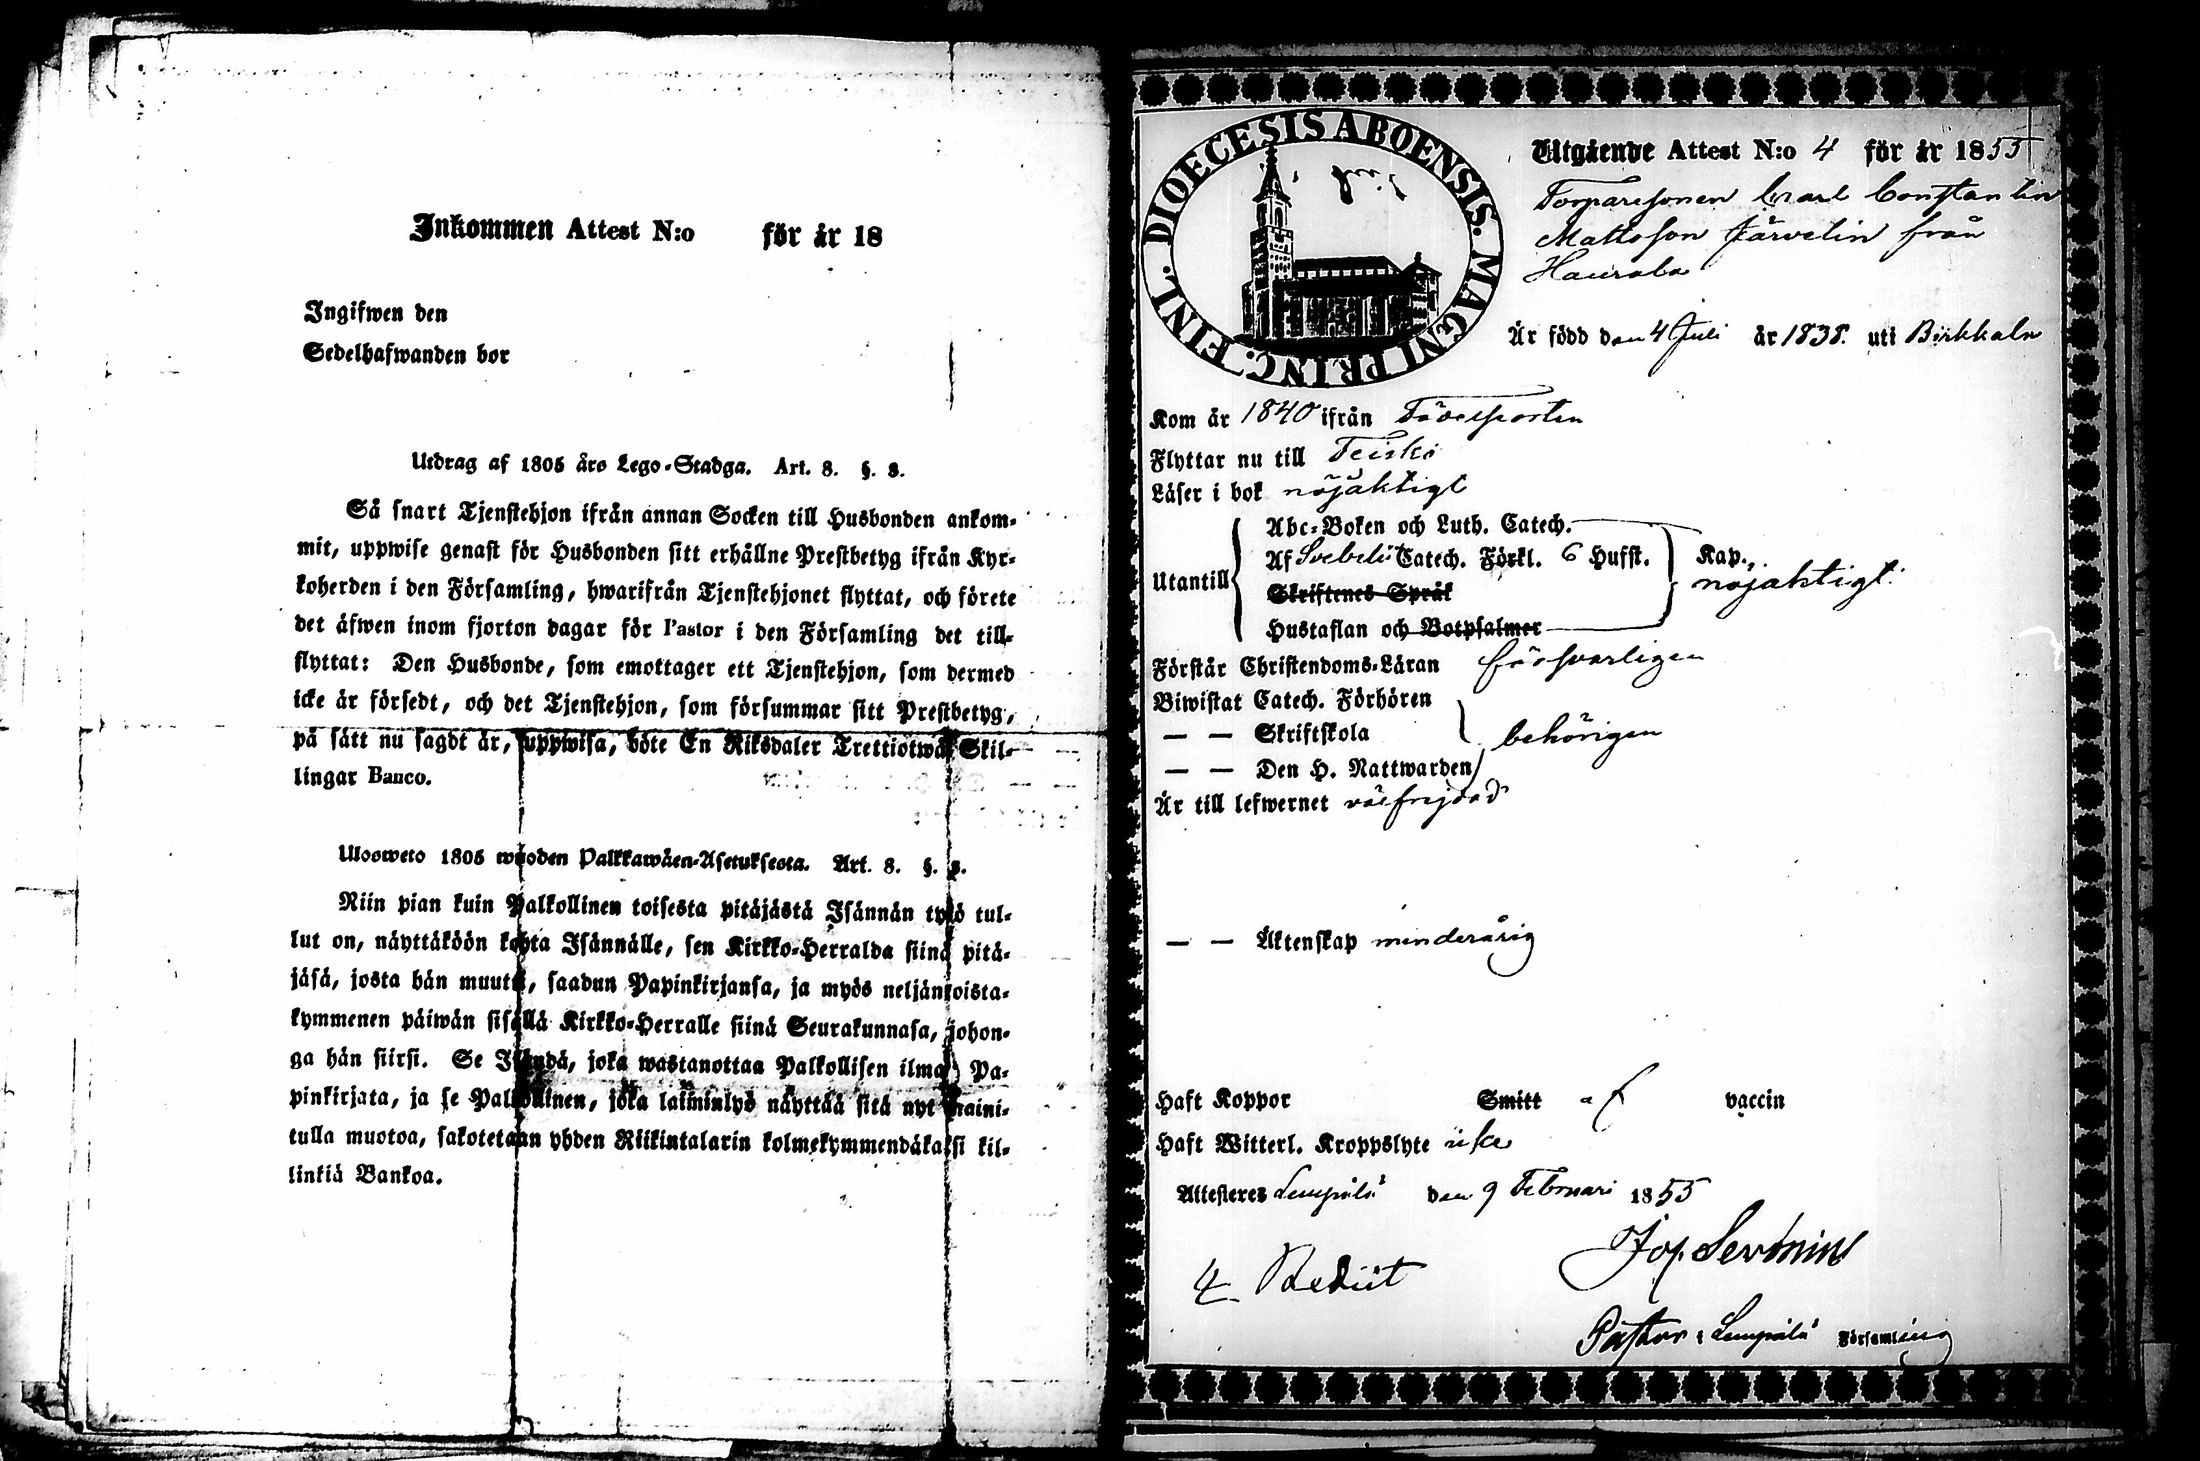 Inkommen Attest N:o för år 18
Ingifwen den
Sedelhafwanden bor
Utdrag af 1805 års Lego-Stadga. Art. 8. §. 8.
Så snart Tjenstehjon ifrån annan Socken till Husbonden ankom-
mit, uppwise genast för Husbonden sitt erhållne Prestbetyg ifrån Kyr-
koherden i den Församling, hwarifrån Tjenstehjonet flyttat, och förete
det äfwen inom fjorton dagar för Pastor i den Församling det till-
flyttat: Den Husbonde, som emottager ett Tjenstehjon, som dermed
icke är försedt, och det Tjenstehjon, som försummar sitt Prestbetyg,
på sätt nu sagdt är, uppwisa, böte En Riksdaler Trettiotwå Skil-
lingar Banco.
Ulosweto 1805 wuoden Palkkawäen-Asetuksesta. Art. 8. §.
Niin pian kuin Palkollinen toisesta pitäjästä Isännän tykö tul-
lut on, näyttäköön kohta Isännälle, sen Kirkko-Herralda siinä pitä-
jäsä, josta hän muutti, saadun Papinkirjansa, ja myös neljäntoista-
kymmenen päiwän sisällä Kirkko-Herralle siinä Seurakunnasa, johon-
ga hän siirsi. Se Isändä, joka wastanottaa Palkollisen ilman Pa-
pinkirjata, ja se Palkollinen, joka laiminlyö näyttää sitä nyt maini-
tulla muotoa, sakotetaan yhden Riikintalarin kolmekymmendäkaksi kil-
linkiä Bankoa.
DIOECESIS ABOENSIS. MAGNI PRINC. FINL.
Utgående Attest N:o 4 för år 1855
Torparesonen Carl Constantin
Mattsson Järvelin från
Haurala
Är född den 4 Juli år 1838. uti Birkkala
Kom år 1840 ifrån
Flyttar nu till Teisko
Läser i bok nöjaktigt
Abc-Boken och Luth. Catech.
Utantill Af Svebelii Catech. Förkl. 6 Hufst. Kap. nöjaktigt
Skriftenes Språk
Hustaflan och Botpsalmer
Förstår Christendoms-Läran försvarligen
Biwistat Catech. Förhören
— — Skriftskola behörigen
— — Den H. Nattwarden
Är till lefwernet välfrejdad
— — Äktenskap minderårig
Haft Koppor Smitt af vaccin
Haft Witterl. Kroppslyte icke
Attesteres Lempälä den 9 Februari 1855
Jos. Sevonius
4 Rediit
Pastor i Lempälä Församling